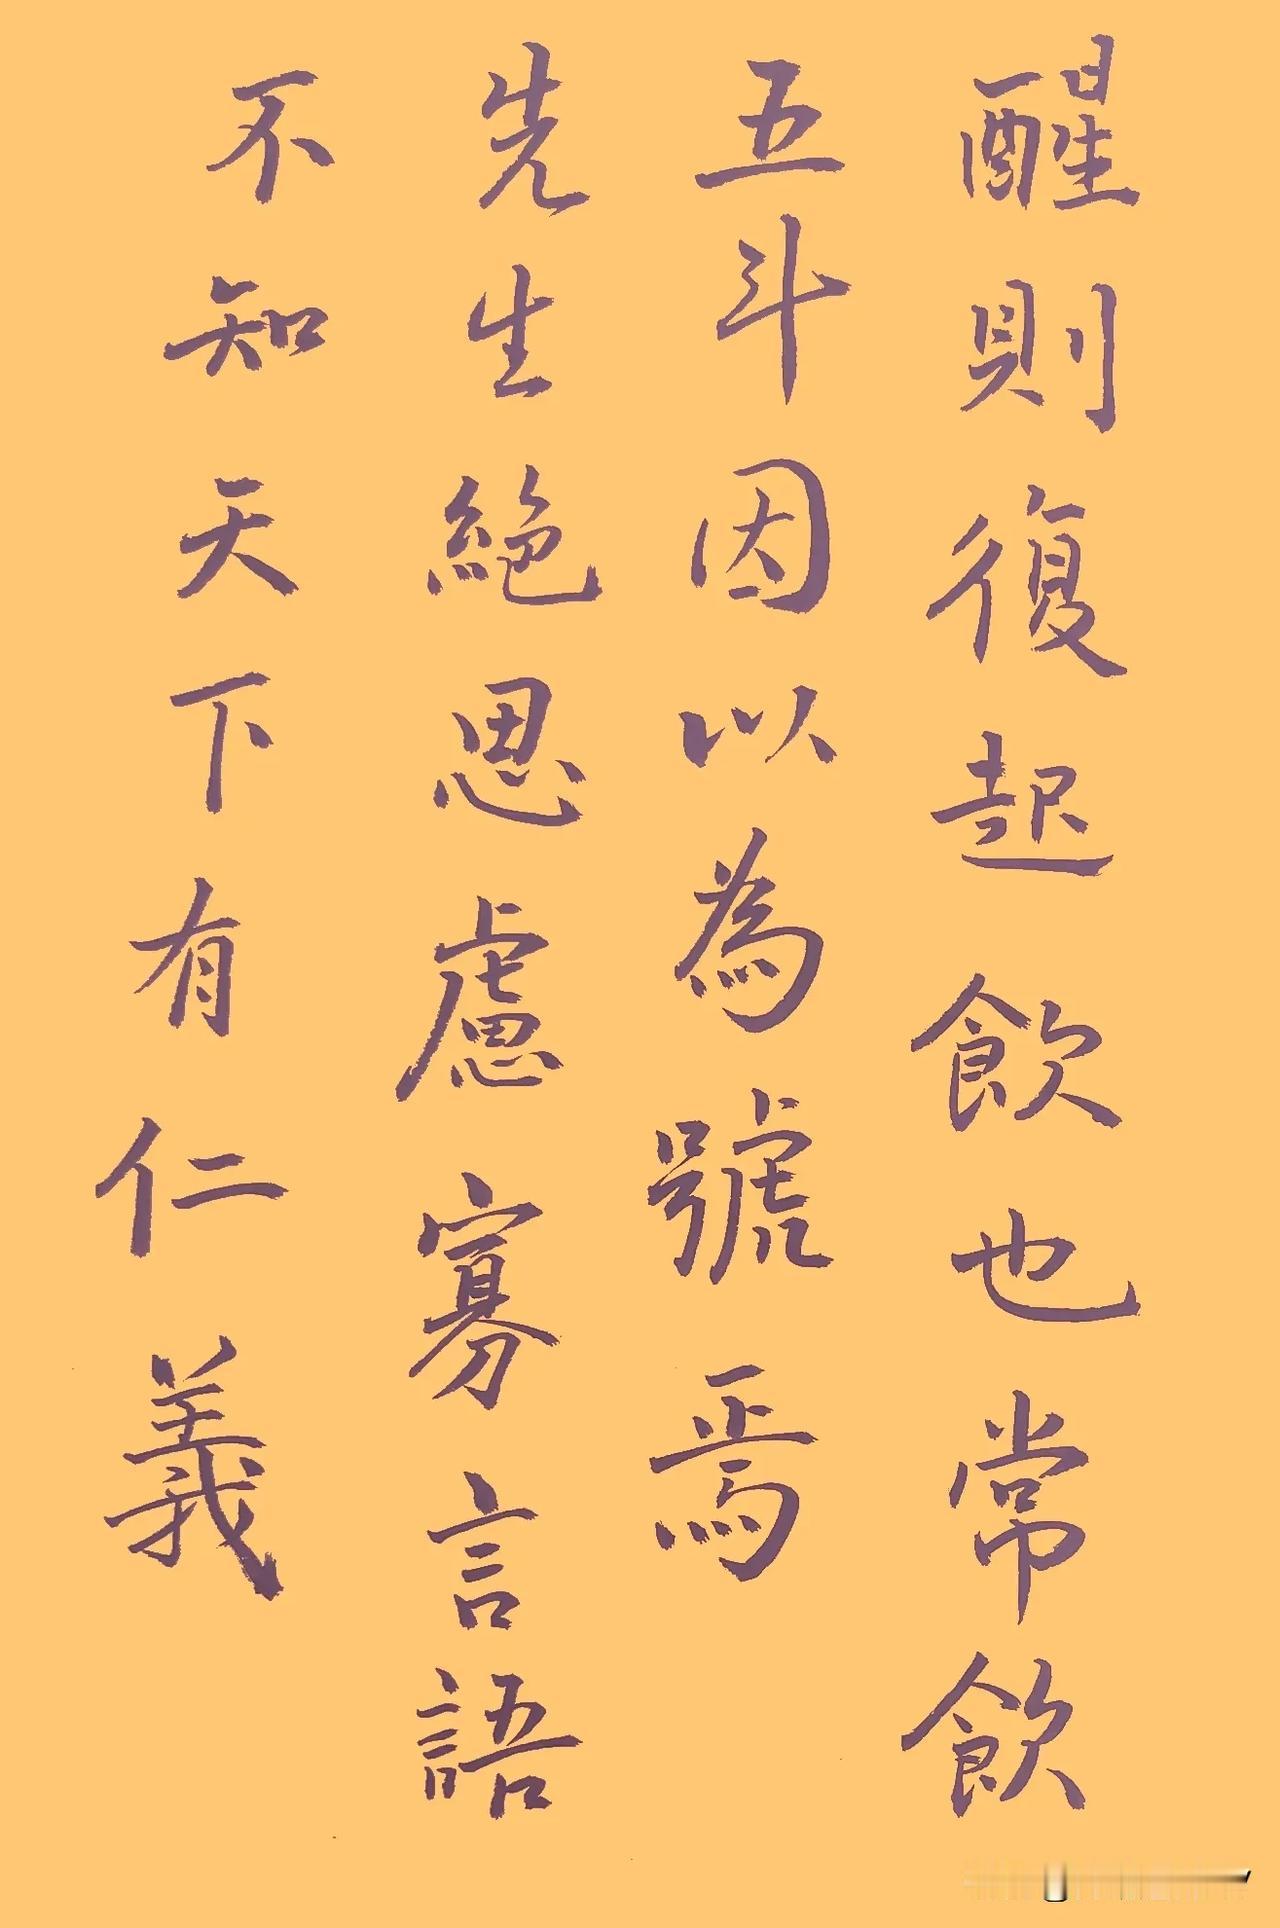 醒則復起飲也常飲
五斗因以為號焉
先生絕思慮寡言語
不知天下有仁義